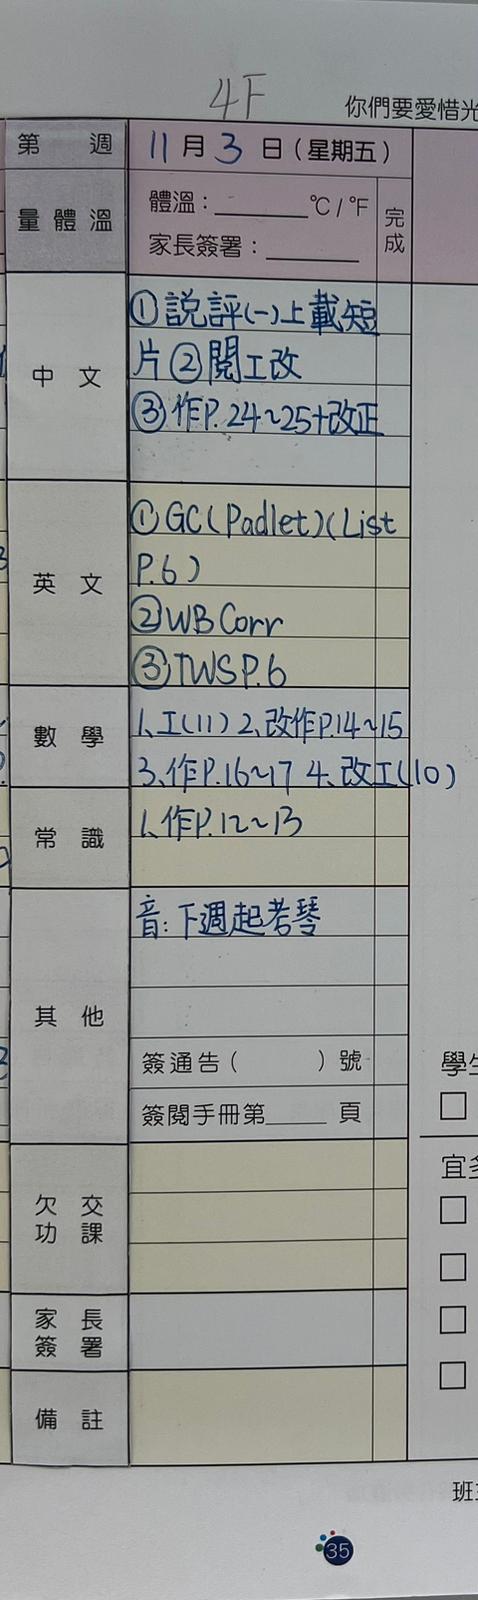 4F
你們要愛惜光
第 週 11月3日(星期五)
量體溫 體溫:______℃/℉ 完成
家長簽署:______
中文 ①説評(一)上載短
片②閱工改
③作P.24~25+改正
英文 ①GC(Padlet)(List
P.6)
②WB Corr
③TWS P.6
數學 1、工(11) 2、改作P.14~15
3、作P.16~17 4、改工(10)
常識 1、作P.12~13
其他 音:下週起考琴
簽通告( )號
簽閱手冊第____頁
學生
宜多
欠交功課
家長簽署
備註
班主
35